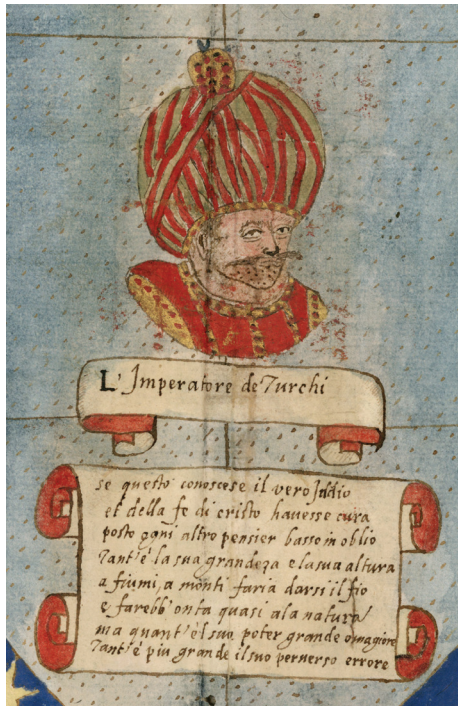 L' Imperatore de Turchi
se questo conoscese il vero Iddio
et della fe di cristo havesse cura
posto ogni altro pensier basso in oblio
Tant' é la sua grandeza e la sua altura
a fiumi, a monti faria darsi il fio
e farebb' onta quasi a la natura
ma quant' él suo poter grande o maggiore
Tant' é piu grande il suo perverso errore